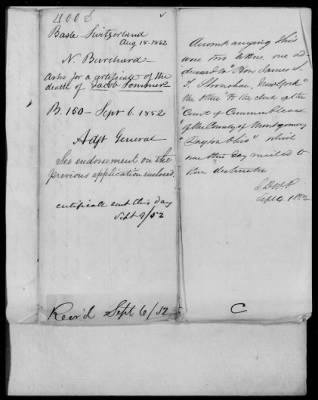 400 S
Basle Switzerland
Aug 14. 1852
N Burchard
Asks for a certificate of the
death of Jacob Sommer
B. 180 - Sept 6. 1852
Adjt General
See endorsement on the
previous application enclosed.
certificate sent this day
Sept 9/52
Recv'd Sept 6/52
Accompanying this
were two letters one ad-
dressed to "Hon James S.
T. Stranahan, New York"
the other "to the clerk of the
Court of Common Pleas
of the County of Montgomery
Dayton Ohio" which
were this day mailed to
their destination
Sept 6 1852
C